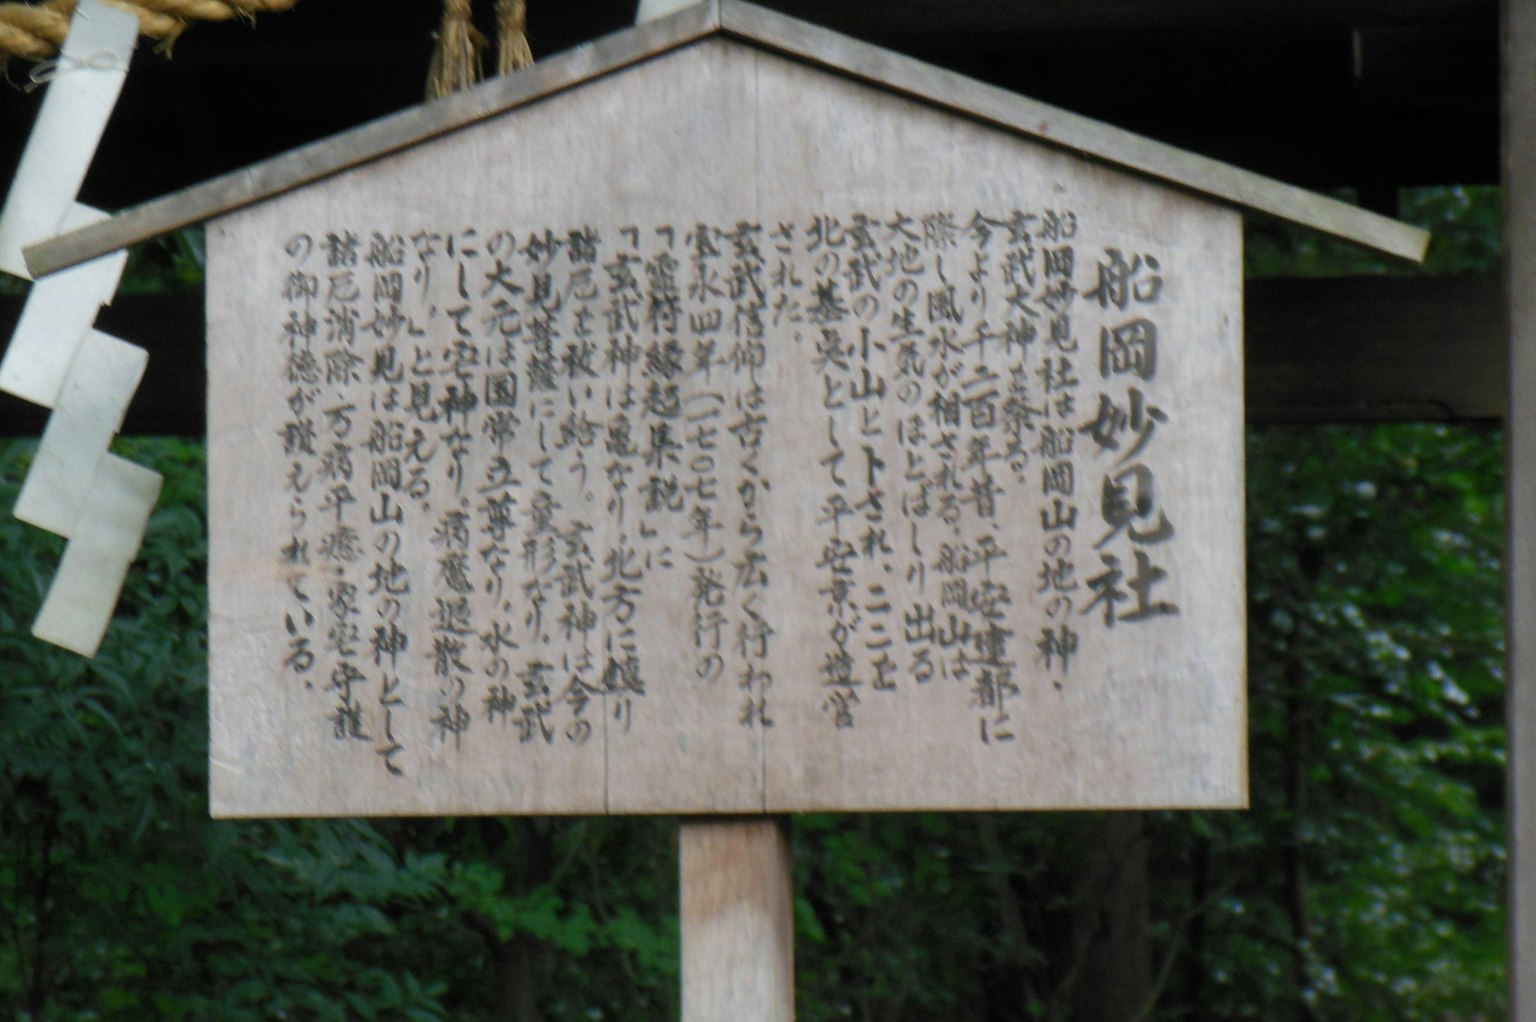 船岡妙見社
船岡妙見社は船岡山の地の神・
玄武大神を祭る。
今より千二百年昔、平安建都に
際し風水が相される。船岡山は
大地の生気のほとばしり出る
玄武の小山と卜され、ここを
北の基点として平安京が造営
された。
玄武信仰は古くから広く行われ
宝永四年(一七〇七年)発行の
「霊符縁起集説」に
「玄武神は亀なり、北方に鎮り
諸厄を祓い給う。玄武神は今の
妙見菩薩にして童形なり。玄武
の大元は国常立尊なり。水の神
にして宅神なり。病魔退散の神
なり。」と見える。
船岡妙見は船岡山の地の神として
諸厄消除・万病平癒・家宅平穏
の御神徳が讃えられている。